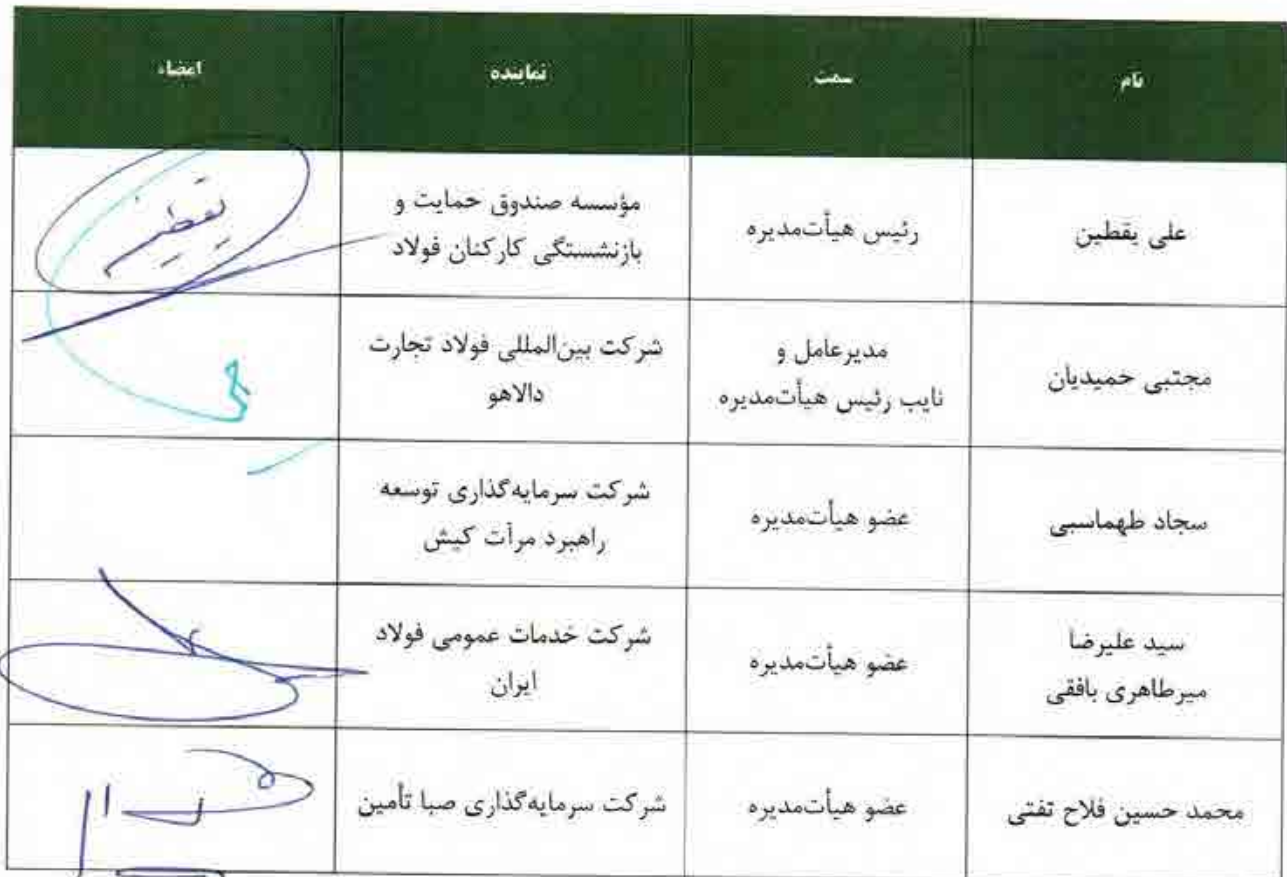 نام سمت نماینده امضاء
علی یقطین رئیس هیأت‌مدیره مؤسسه صندوق حمایت و
بازنشستگی کارکنان فولاد یقطین
مجتبی حمیدیان مدیرعامل و
نایب رئیس هیأت‌مدیره شرکت بین‌المللی فولاد تجارت
دالاهو
سجاد طهماسبی عضو هیأت‌مدیره شرکت سرمایه‌گذاری توسعه
راهبرد مرآت کیش
سید علیرضا
میرطاهری بافقی عضو هیأت‌مدیره شرکت خدمات عمومی فولاد
ایران
محمد حسین فلاح تفتی عضو هیأت‌مدیره شرکت سرمایه‌گذاری صبا تأمین